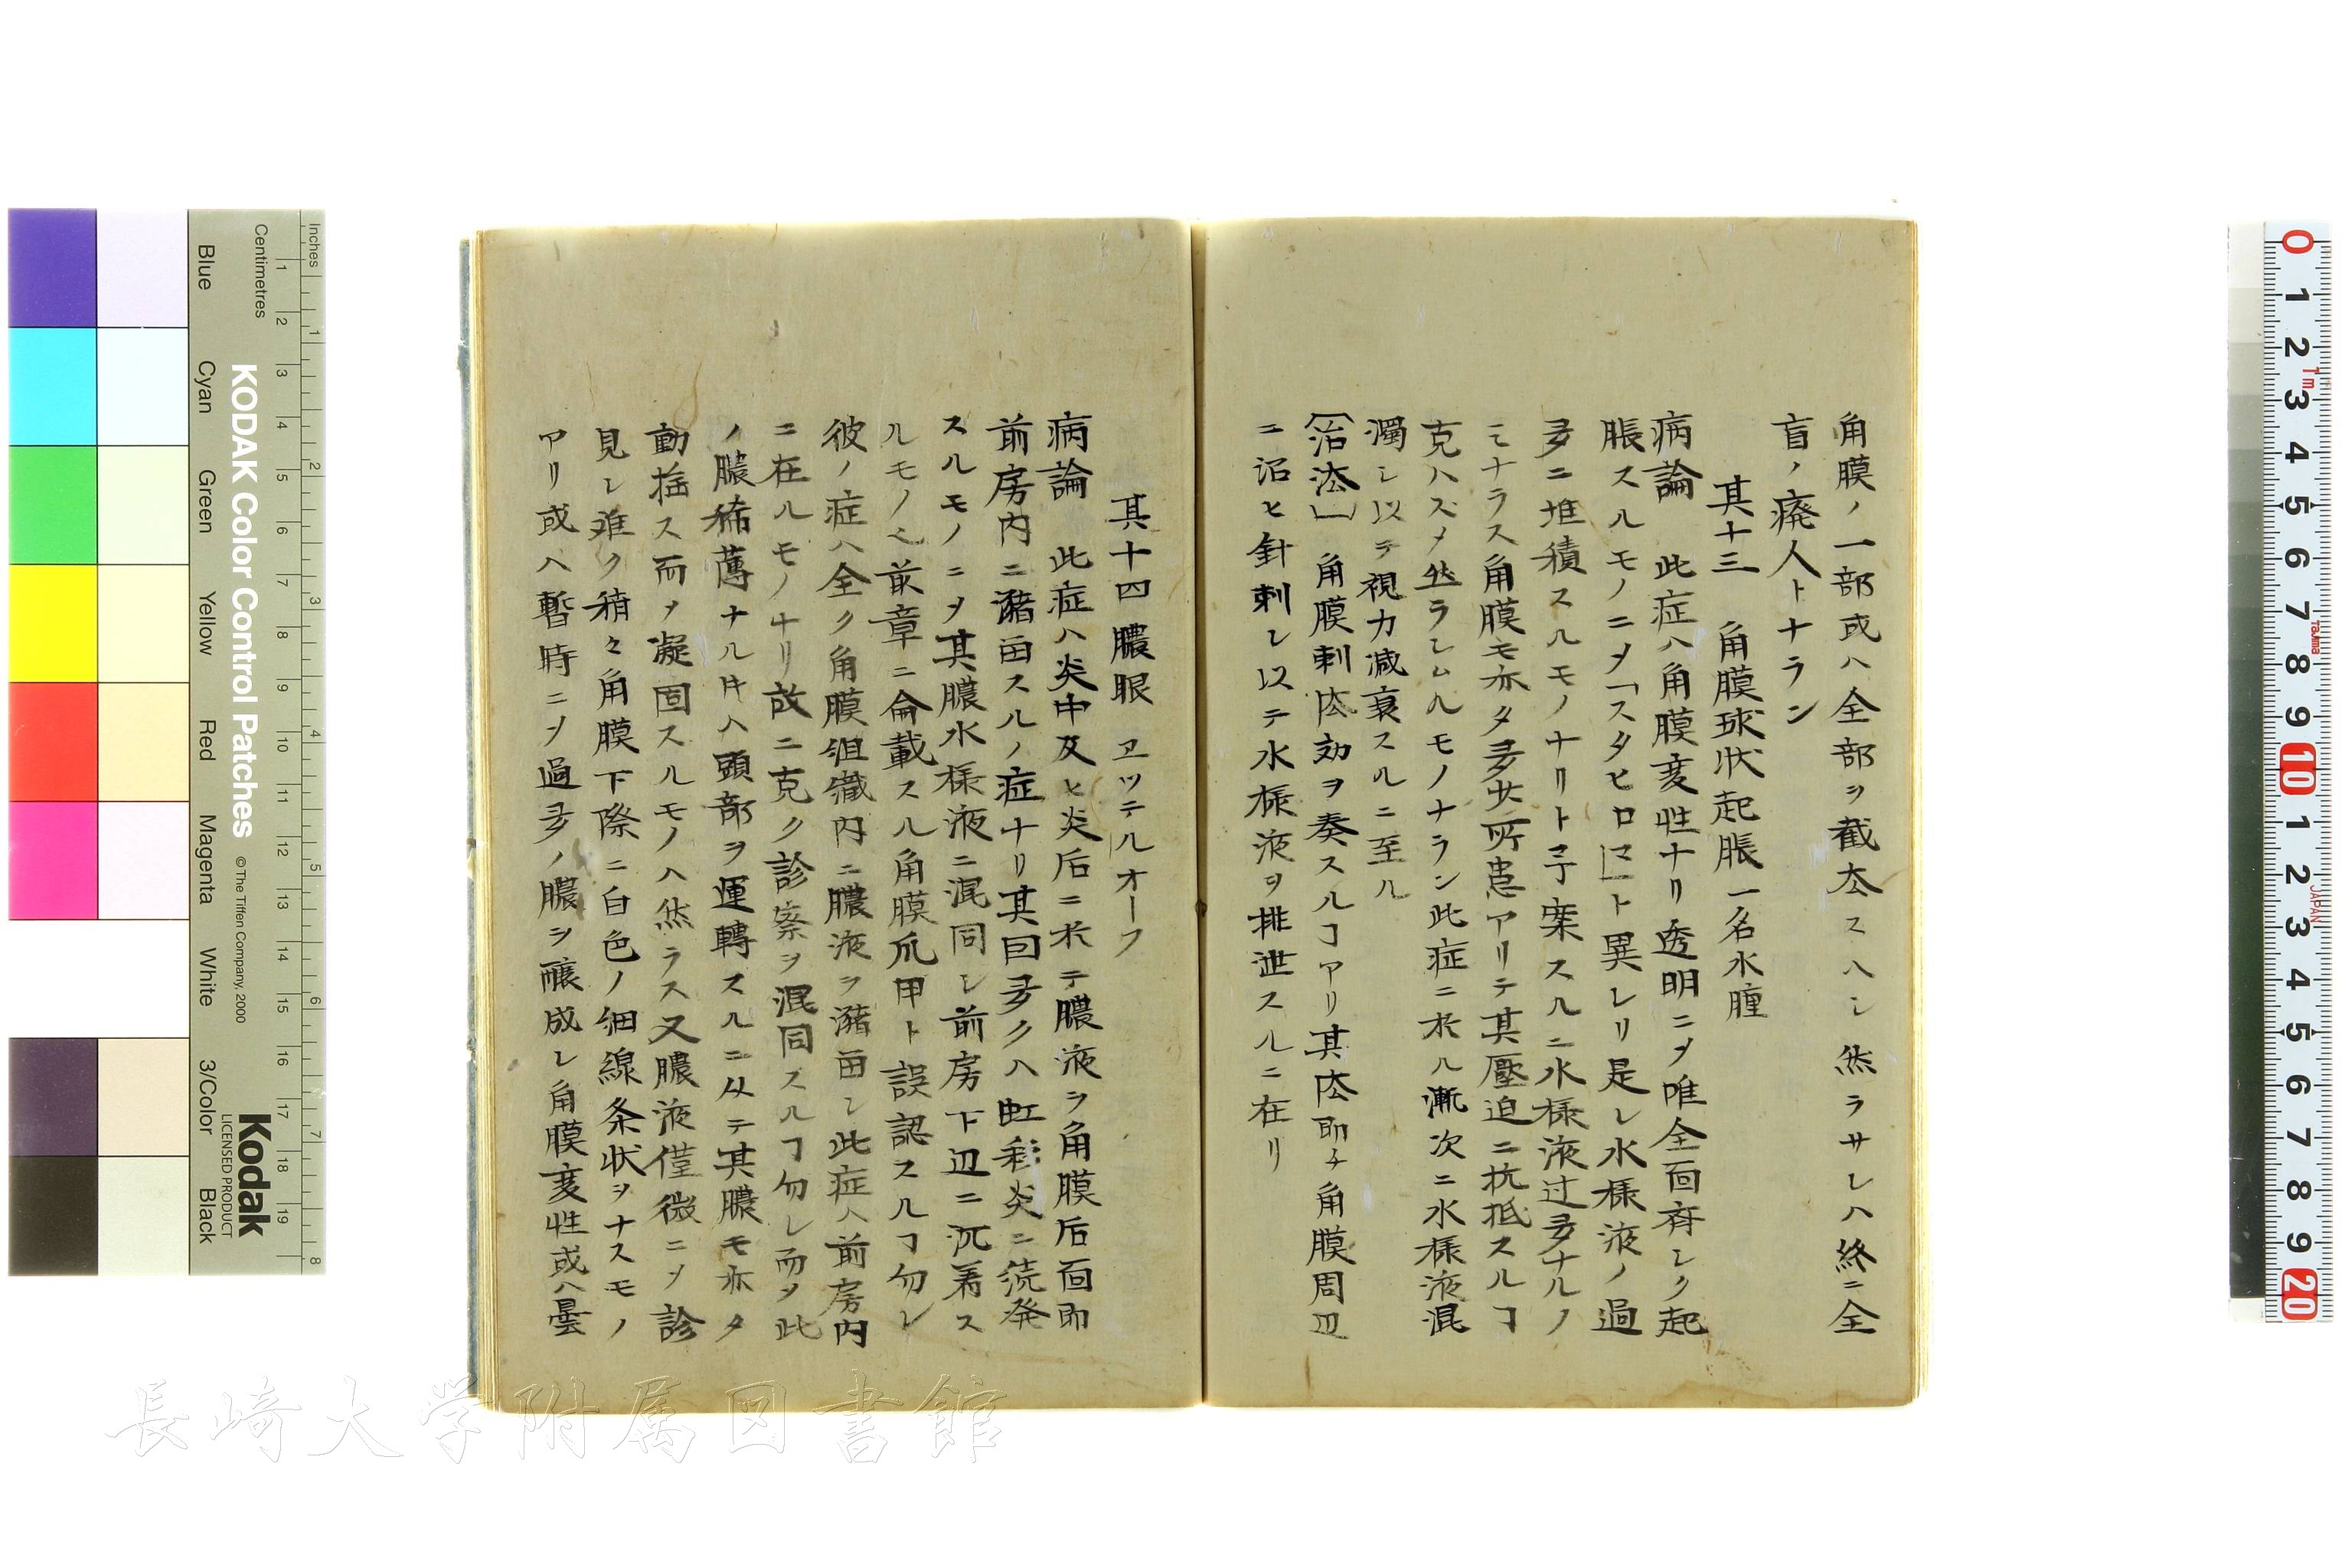 角膜ノ一部或ハ全部ヲ截厺スヘシ然ラサレハ終ニ全
盲ノ癈人トナラン
其十三 角膜球状起脹一名水腫
病論 此症ハ角膜変性ナリ透明ニヿ唯全面斉シク起
脹スルモノニヿ「スタヒロマ」ト異レリ是レ水様液ノ過
多ニ堆積スルモノナリト予案スルニ水様液过多ナルノ
ミナラス角膜モ亦タ多少所患アリテ其壓迫ニ抗抵スルヿ
克ハズメ然ラシムルモノナラン此症ニ於ル漸次ニ水様液混
濁シ以テ視力減衰スルニ至ル
〔治法〕 角膜刺法効ヲ奏スルヿアリ其法即チ角膜周辺
ニ沿ヒ針刺シ以テ水様液ヲ排泄スルニ在リ
其十四膿眼 ヱッテルオーフ
病論 此症ハ炎中及ヒ炎后ニ於テ膿液ヲ角膜后面即
前房内ニ瀦畄スルノ症ナリ其因多クハ虹彩炎ニ続発
スルモノニヿ其膿水様液ニ混同シ前房下辺ニ沉着ス
ルモノ也前章ニ侖載スル角膜爪甲ト誤認スルヿ勿レ
彼ノ症ハ全ク角膜組織内ニ膿液ヲ瀦畄シ此症ハ前房内
ニ在ルモノナリ故ニ克ク診察ヲ混同スルヿ勿レ而ヿ此
ノ膿稀薄ナル片ハ頭部ヲ運轉スルニ从テ其膿モ亦タ
動揺ス而ヿ凝固スルモノハ然ラス又膿液僅微ニヿ診
見シ难ク稍々角膜下際ニ白色ノ細線条状ヲナスモノ
アリ或ハ暫時ニヿ過多ノ膿ヲ釀成シ角膜変性或ハ曇
Inches
Centimetres
KODAK Color Control Patches
© The Tiffen Company, 2000
Kodak
LICENSED PRODUCT
Blue
Cyan
Green
Yellow
Red
Magenta
White
3/Color
Black
長崎大学附属図書館